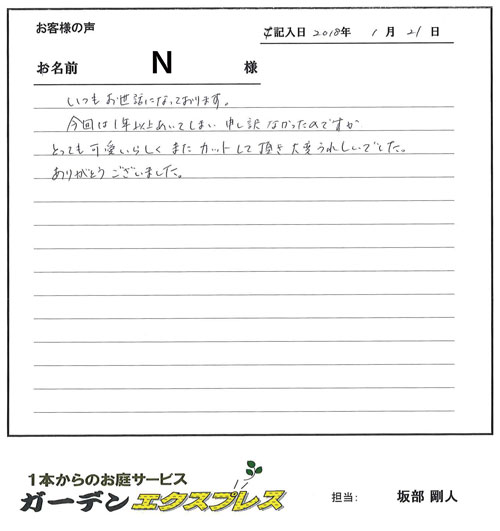 お客様の声
ご記入日 2018年 1月 21日
お名前 N 様
いつもお世話になっております。
今回は1年以上あいてしまい 申し訳 なかったのですが
とっても可愛いらしく また カットして頂き 大変うれしいでした。
ありがとう ございました。
1本からのお庭サービス
ガーデンエクスプレス
担当: 坂部 剛人